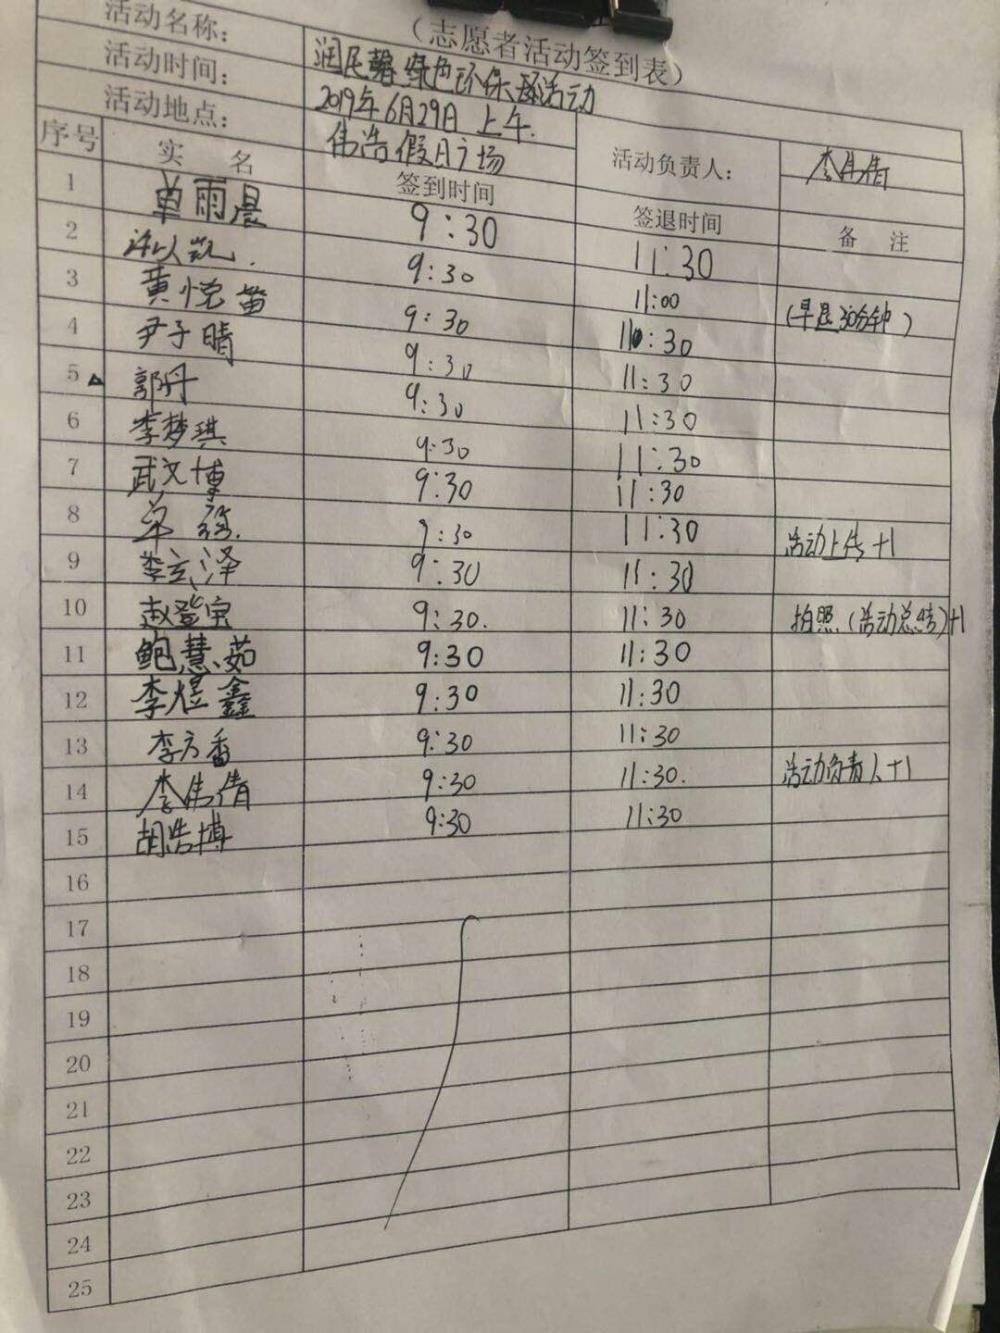 （志愿者活动签到表）
活动名称： 润民馨绿色环保 活动
活动时间： 2019年6月29日 上午.
活动地点： 伟浩假日广场 活动负责人： 李伟倩
序号 实 名 签到时间 签退时间 备 注
1 单雨晨 9:30 11:30
2 许以凯. 9:30 11:00 (早退30分钟)
3 黄悦苗 9:30 11:30
4 尹子晴 9:30 11:30
5 郭丹 9:30 11:30
6 李梦琪 9:30 11:30
7 武文博 9:30 11:30
8 9:30 11:30 活动上传+1
9 李玄泽 9:30 11:30
10 赵登宝 9:30. 11:30 拍照(活动总结)+1
11 鲍慧茹 9:30 11:30
12 李煜鑫 9:30 11:30
13 李方香 9:30 11:30
14 李伟倩 9:30 11:30. 活动负责人+1
15 胡浩博 9:30 11:30
16
17
18
19
20
21
22
23
24
25